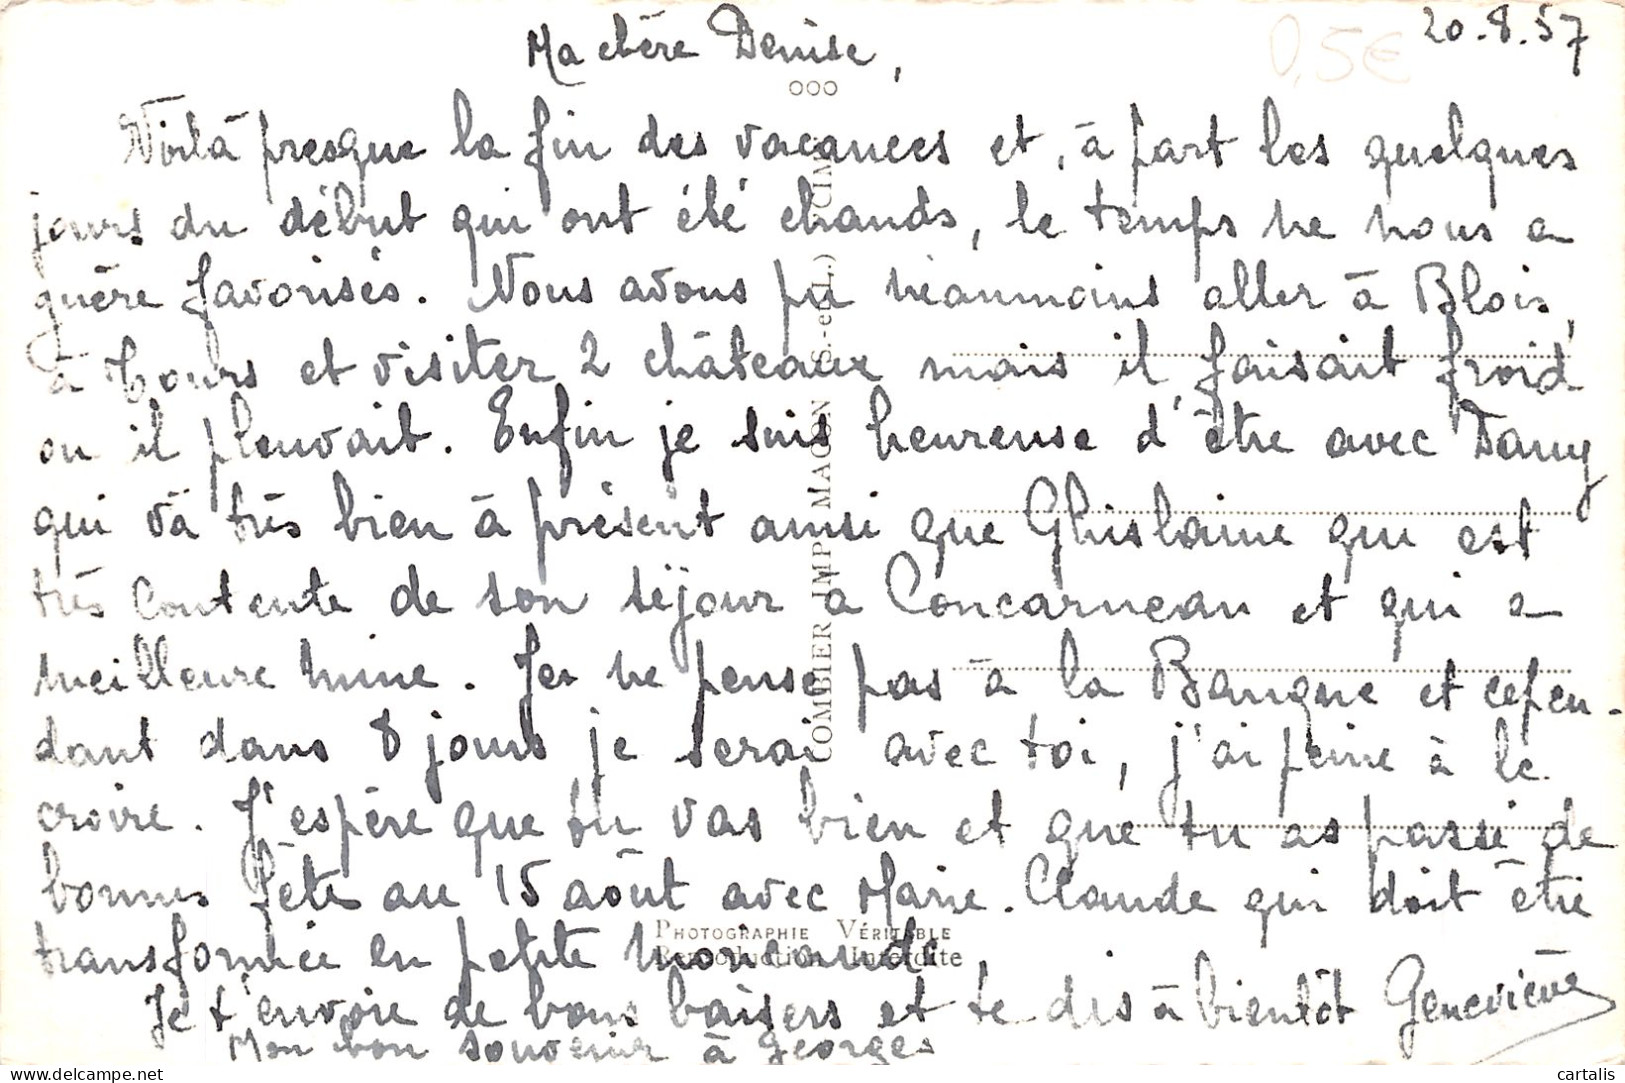 20.8.57
0,5€
Ma chère Denise,
Voilà presque la fin des vacances et, à part les quelques
jours du début qui ont été chauds, le temps ne nous a
guère favorisés. Nous avons pu néanmoins aller à Blois,
à Tours et visiter 2 châteaux mais il faisait froid
ou il pleuvait. Enfin je suis heureuse d'être avec Dany
qui va très bien à présent ainsi que Ghislaine qui est
très contente de son séjour à Concarneau et qui a
meilleure mine. Je ne pense pas à la Banque et cepen-
dant dans 8 jours je serai avec toi, j'ai peine à le
croire. J'espère que tu vas bien et que tu as passé de
bonnes fête au 15 août avec Marie-Claude qui doit être
transformée en petite
Je t'envoie de bons baisers et te dis à bientôt Geneviève
Mon bon souvenir à Georges
COMBIER IMP. MACON (S.-et-L.)
PHOTOGRAPHIE VÉRITABLE
Reproduction Interdite
cartalis
delcampe.net